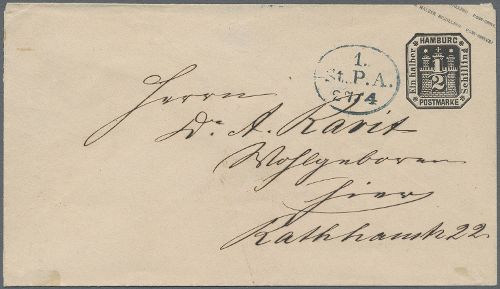 HAMBURG
Ein halber
Schilling
1/2
POSTMARKE
1.
St. P. A.
29/4
Herrn
Dr. A. Ravit
Wohlgeboren
hier
Rathhausstr. 22.